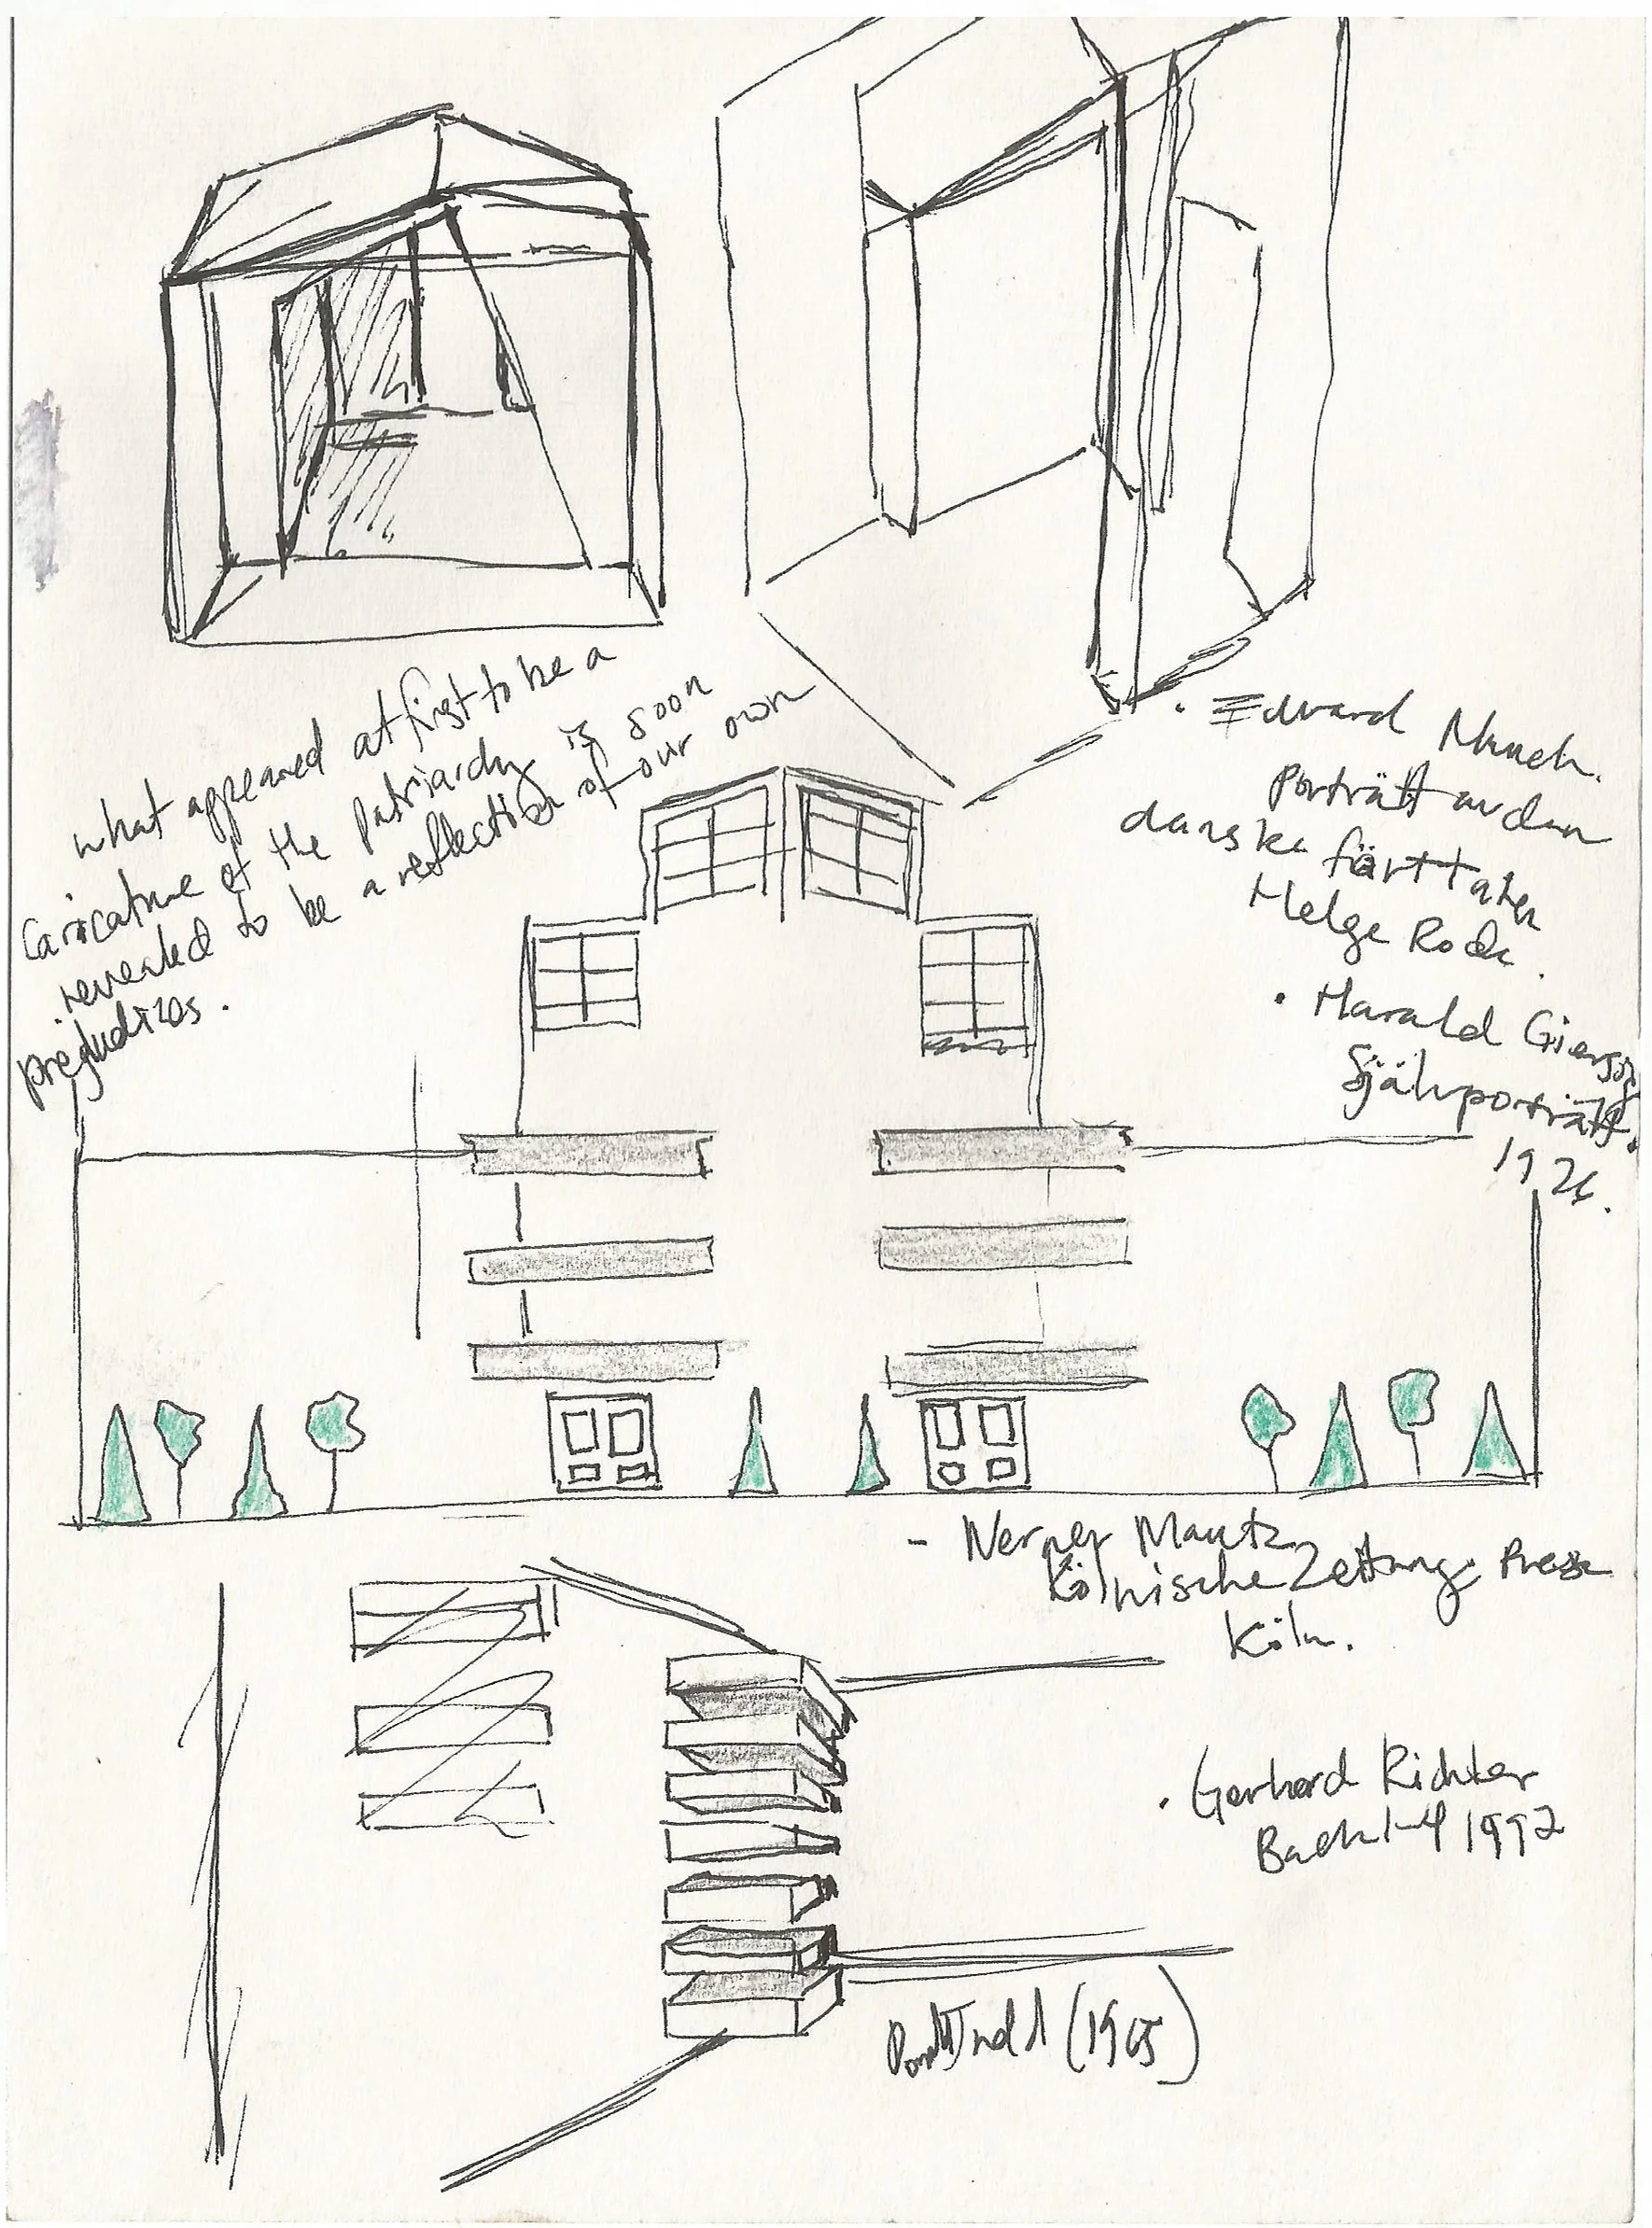 what appeared at first to be a
caricature of the patriarchy is soon
revealed to be a reflection of our own
prejudizes.
• Edvard Munch.
Porträtt av den
danske författaren
Helge Rode.
• Harald Giersing
Självporträtt.
1926.
- Werner Mantz
Kölnische Zeitung, Presse
Köln.
• Gerhard Richter
1992
Donald Judd (1965)